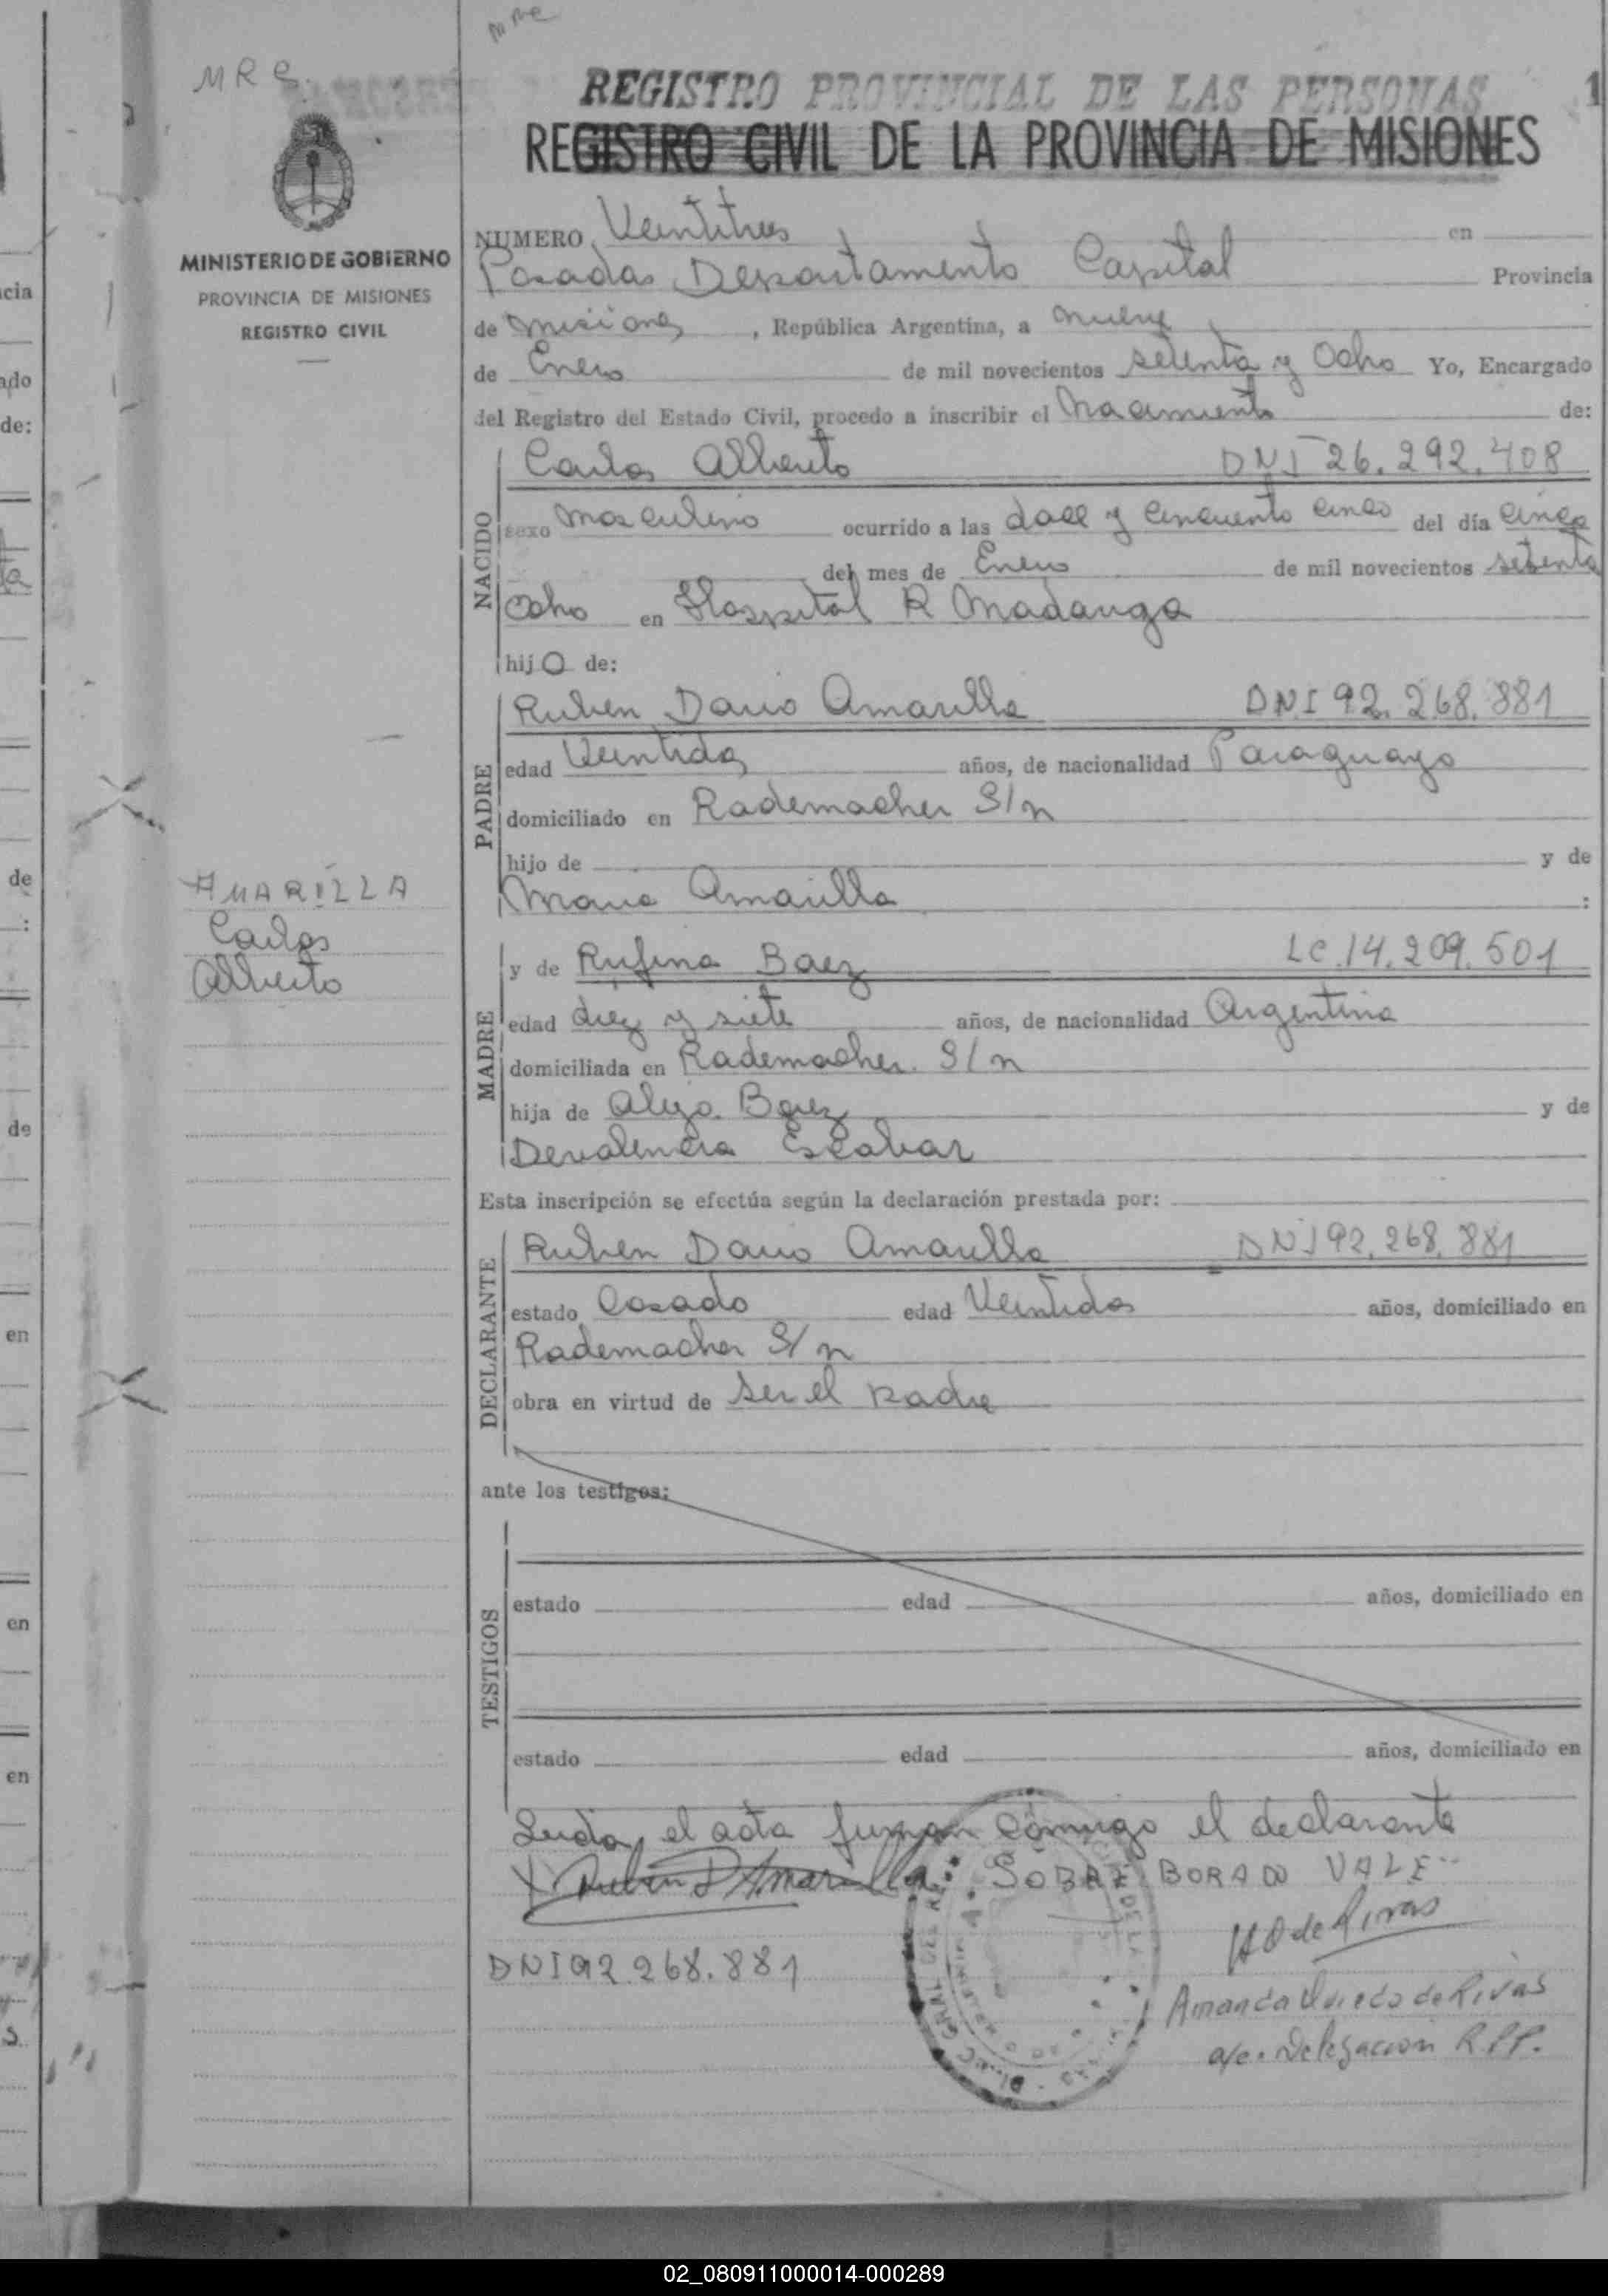 MRE
MRE
REGISTRO PROVINCIAL DE LAS PERSONAS
1
REGISTRO CIVIL DE LA PROVINCIA DE MISIONES
MINISTERIO DE GOBIERNO
PROVINCIA DE MISIONES
REGISTRO CIVIL
NUMERO Veintitres en
Posadas Departamento Capital Provincia
de Misiones, República Argentina, a nueve
de Enero de mil novecientos setenta y Ocho Yo, Encargado
del Registro del Estado Civil, procedo a inscribir el Nacimiento de:
NACIDO
Carlos Alberto DNI 26.292.408
sexo Masculino ocurrido a las doce y cincuenta cinco del día cinco
del mes de Enero de mil novecientos setenta
Ocho en Hospital R Madariaga
hijO de:
PADRE
Ruben Dario Amarilla DNI 92.268.881
edad Veintidos años, de nacionalidad Paraguayo
domiciliado en Rademacher S/n
hijo de y de
Maria Amarilla :
AMARILLA
Carlos
Alberto
MADRE
y de Rufina Baez LC.14.209.501
edad diez y siete años, de nacionalidad Argentina
domiciliada en Rademacher S/n
hija de Alejo Baez y de
Escobar
Esta inscripción se efectúa según la declaración prestada por:
DECLARANTE
Ruben Dario Amarilla DNI 92.268.881
estado Casado edad Veintidos años, domiciliado en
Rademacher S/n
obra en virtud de ser el padre
ante los testigos:
TESTIGOS
estado edad años, domiciliado en
estado edad años, domiciliado en
Leida el acta firman conmigo el declarante
X Ruben D Amarilla SOBRE BORADO VALE
HO de Rivas
DNI 92.268.881
Amanda Oviedo de Rivas
a/c. Delegacion R.P.P.
02_080911000014-000289